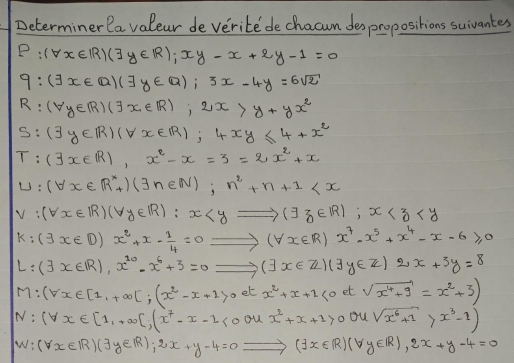 Déterminer la valeur de vérité de chacun des propositions suivantes
P : (∀x∈ℝ)(∃y∈ℝ) ; xy - x + 2y - 1 = 0
q : (∃x∈ℚ)(∃y∈ℚ) ; 3x - 4y = 6√2
R : (∀y∈ℝ)(∃x∈ℝ) ; 2x > y + yx²
S : (∃y∈ℝ)(∀x∈ℝ) ; 4xy ⩽ 4 + x²
T : (∃x∈ℝ) , x² - x = 3 = 2x² + x
U : (∀x∈ℝ*₊)(∃n∈ℕ) ; n² + n + 1 < x
V : (∀x∈ℝ)(∀y∈ℝ) : x < y ⟹ (∃z∈ℝ) ; x < z < y
K : (∃x∈𝔻) x² + x - 1/4 = 0 ⟹ (∀x∈ℝ) x⁷ - x⁵ + x⁴ - x - 6 ⩾ 0
L : (∃x∈ℝ), x¹⁰ - x⁶ + 3 = 0 ⟹ (∃x∈ℤ)(∃y∈ℤ) 2x + 3y = 8
M : (∀x∈[1,+∞[ ; (x² - x + 1 > 0 et x² + x + 1 < 0 et √(x⁴+9) = x² + 3)
N : (∀x∈[1,+∞[, (x⁷ - x - 1 < 0 ou x² + x + 1 > 0 ou √(x⁶+1) > x³ - 1)
W : (∀x∈ℝ)(∃y∈ℝ) ; 2x + y - 4 = 0 ⟹ (∃x∈ℝ)(∀y∈ℝ), 2x + y - 4 = 0